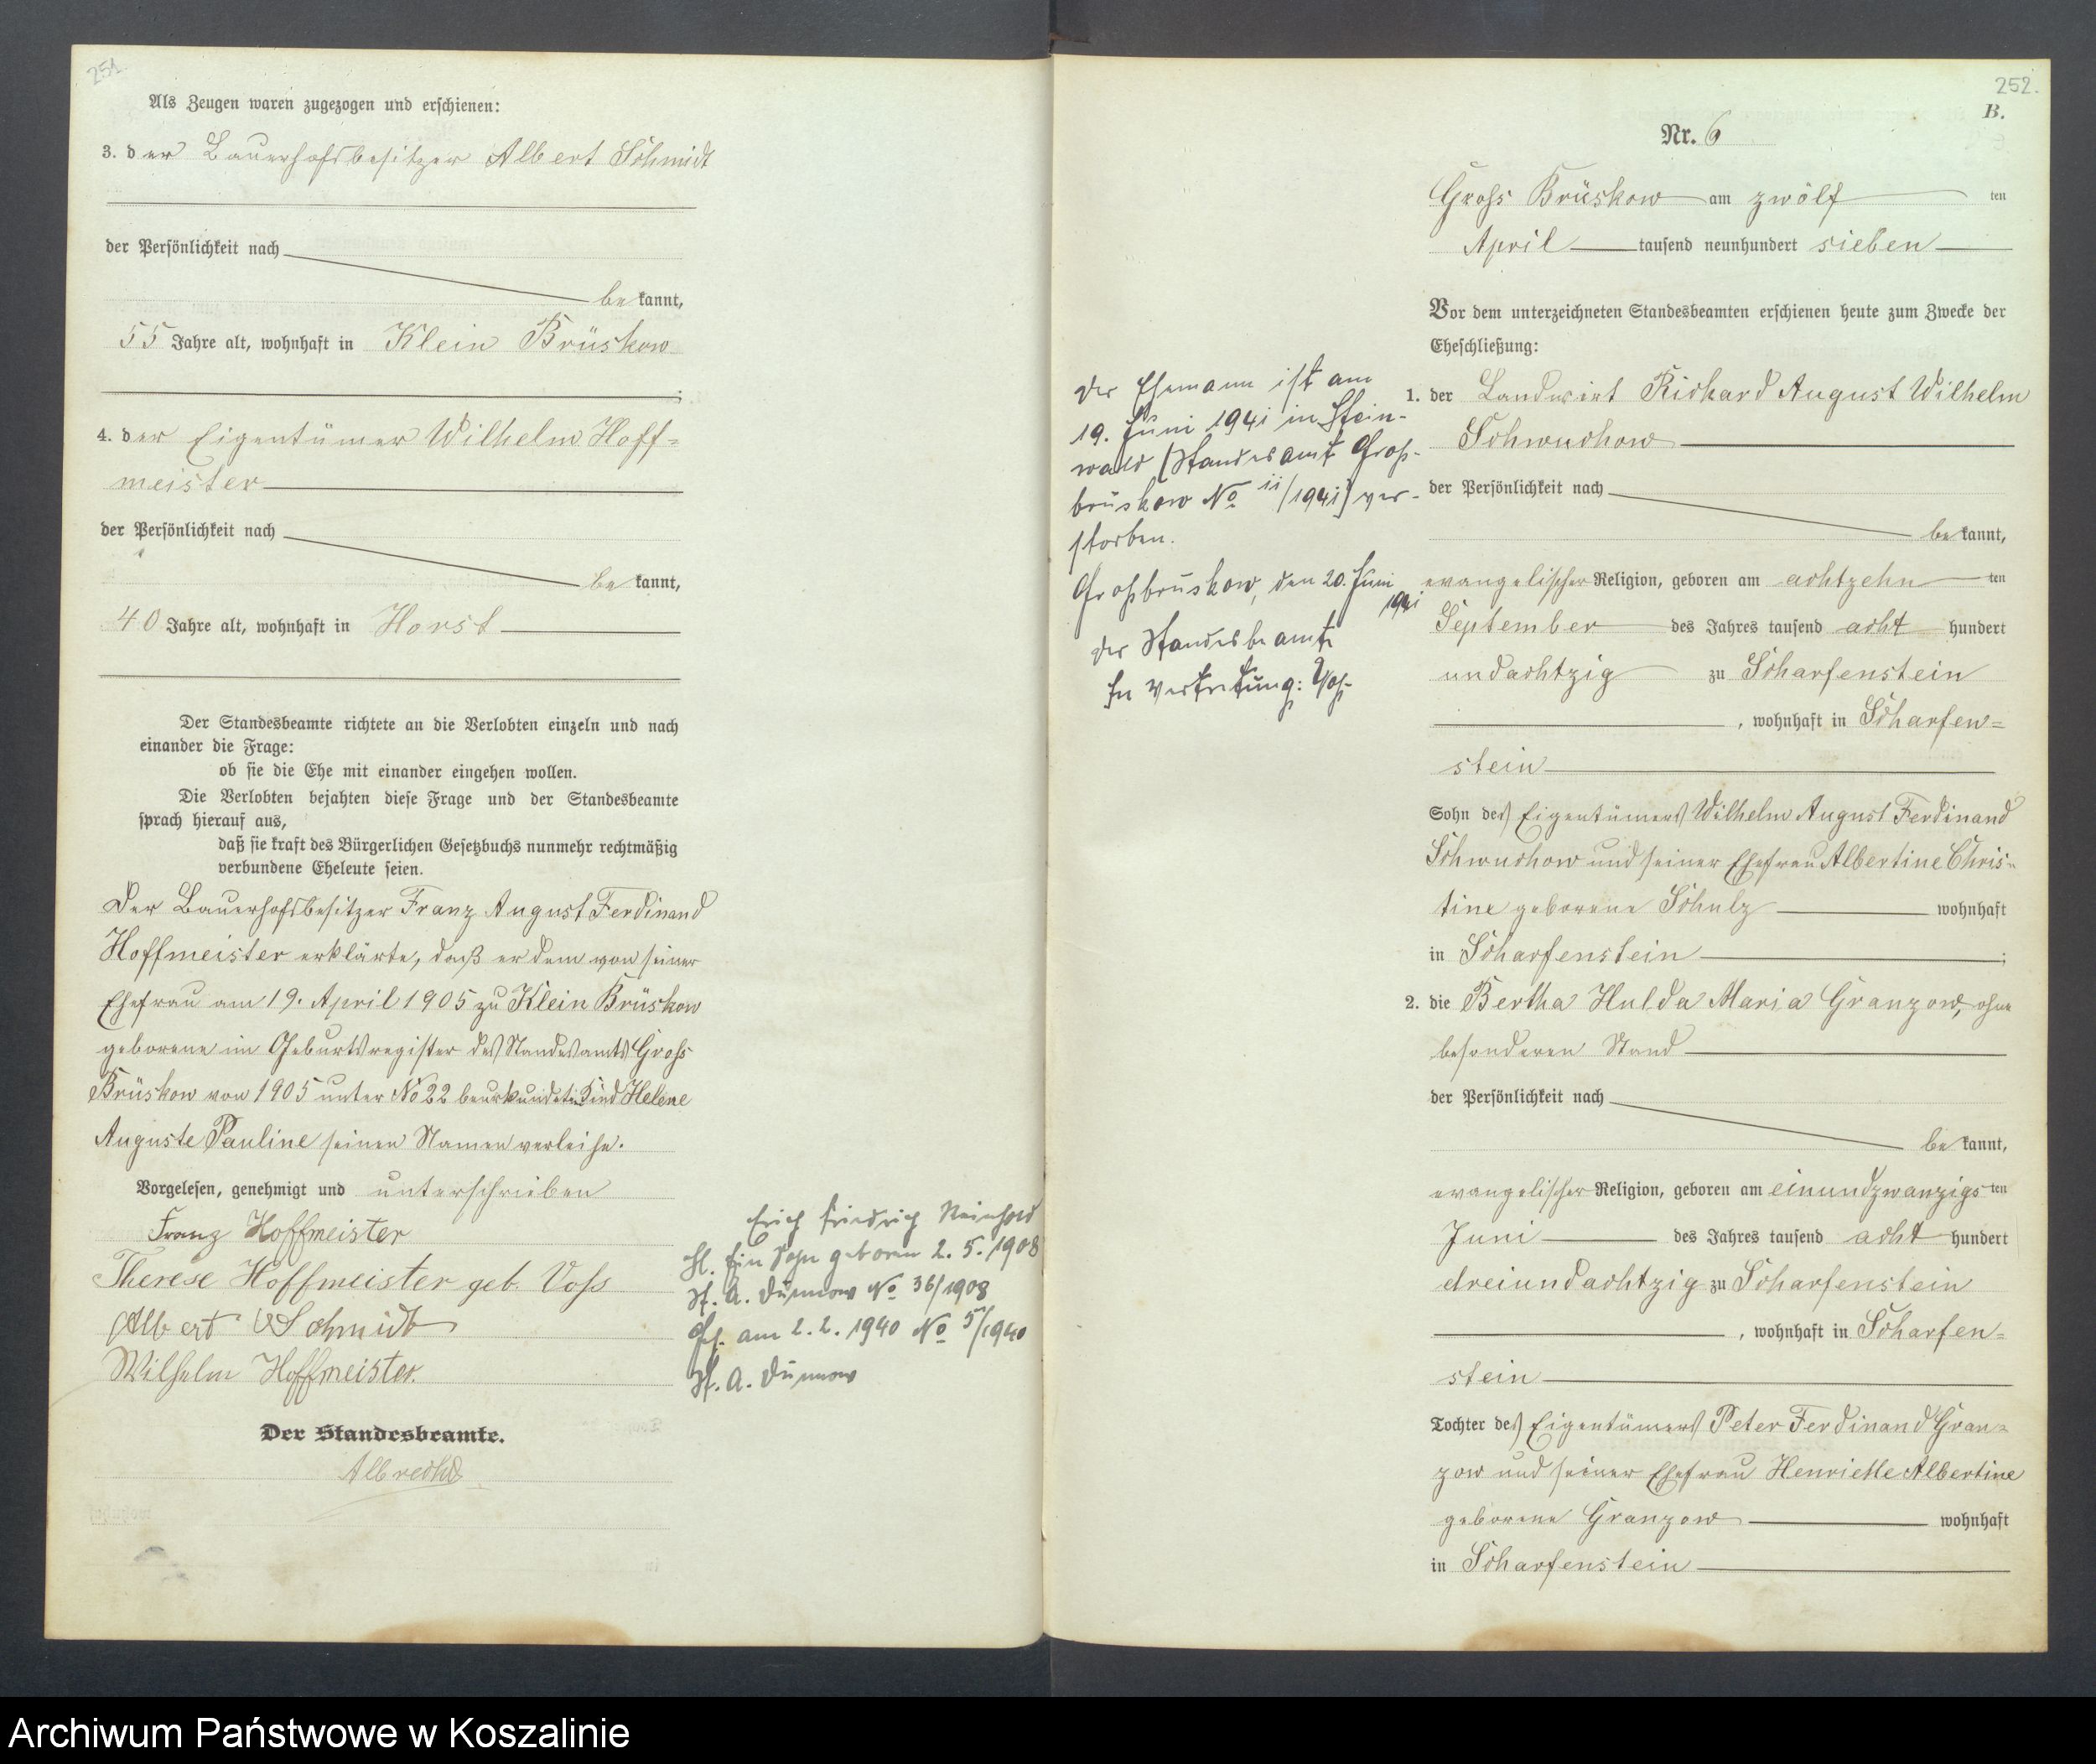 251.
Als Zeugen waren zugezogen und erschienen:
3. der Bauerhofsbesitzer Albert Schmidt
der Persönlichkeit nach
bekannt,
55 Jahre alt, wohnhaft in Klein Brüskow
;
4. der Eigentümer Wilhelm Hoff=
meister
der Persönlichkeit nach
bekannt,
40 Jahre alt, wohnhaft in Horst
Der Standesbeamte richtete an die Verlobten einzeln und nach
einander die Frage:
ob sie die Ehe mit einander eingehen wollen.
Die Verlobten bejahten diese Frage und der Standesbeamte
sprach hierauf aus,
daß sie kraft des Bürgerlichen Gesetzbuchs nunmehr rechtmäßig
verbundene Eheleute seien.
Der Bauerhofsbesitzer Franz August Ferdinand
Hoffmeister erklärte, daß er dem von seiner
Ehefrau am 19. April 1905 zu Klein Brüskow
geborene im Geburtsregister des Standesamts Gross
Brüskow von 1905 unter No 22 beurkundeten Kind Helene
Auguste Pauline seinen Namen verleihe.
Vorgelesen, genehmigt und unterschrieben
Franz Hoffmeister
Therese Hoffmeister geb. Voss
Albert Schmidt
Wilhelm Hoffmeister.
Der Standesbeamte.
Albrecht
Erich Friedrich Reinhold
Ein Sohn geboren 2. 5. 1908
St. A. Dünnow No 36/1908
am 2. 2. 1940 No 5/1940
St. A. Dünnow
252.
B.
Nr. 6
Gross Brüskow am zwölf ten
April tausend neunhundert sieben
Vor dem unterzeichneten Standesbeamten erschienen heute zum Zwecke der
Eheschließung:
1. der Landwirt Richard August Wilhelm
Schwuchow
der Persönlichkeit nach
bekannt,
evangelischer Religion, geboren am achtzehn ten
September des Jahres tausend acht hundert
undachtzig zu Scharfenstein
, wohnhaft in Scharfen=
stein
Sohn des Eigentümers Wilhelm August Ferdinand
Schwuchow und seiner Ehefrau Albertine Chris=
tine geborene Schulz wohnhaft
in Scharfenstein ;
2. die Bertha Hulda Maria Granzow, ohne
besonderen Stand
der Persönlichkeit nach
bekannt,
evangelischer Religion, geboren am einundzwanzigs ten
Juni des Jahres tausend acht hundert
dreiundachtzig zu Scharfenstein
, wohnhaft in Scharfen=
stein
Tochter des Eigentümers Peter Ferdinand Gran=
zow und seiner Ehefrau Henriette Albertine
geborene Granzow wohnhaft
in Scharfenstein
Der Ehemann ist am
19. Juni 1941 in Stein-
wald (Standesamt Groß-
brüskow No 11/1941) ver-
storben.
Großbrüskow, den 20. Juni
1941
Der Standesbeamte
In Vertretung: Voß
Archiwum Państwowe w Koszalinie